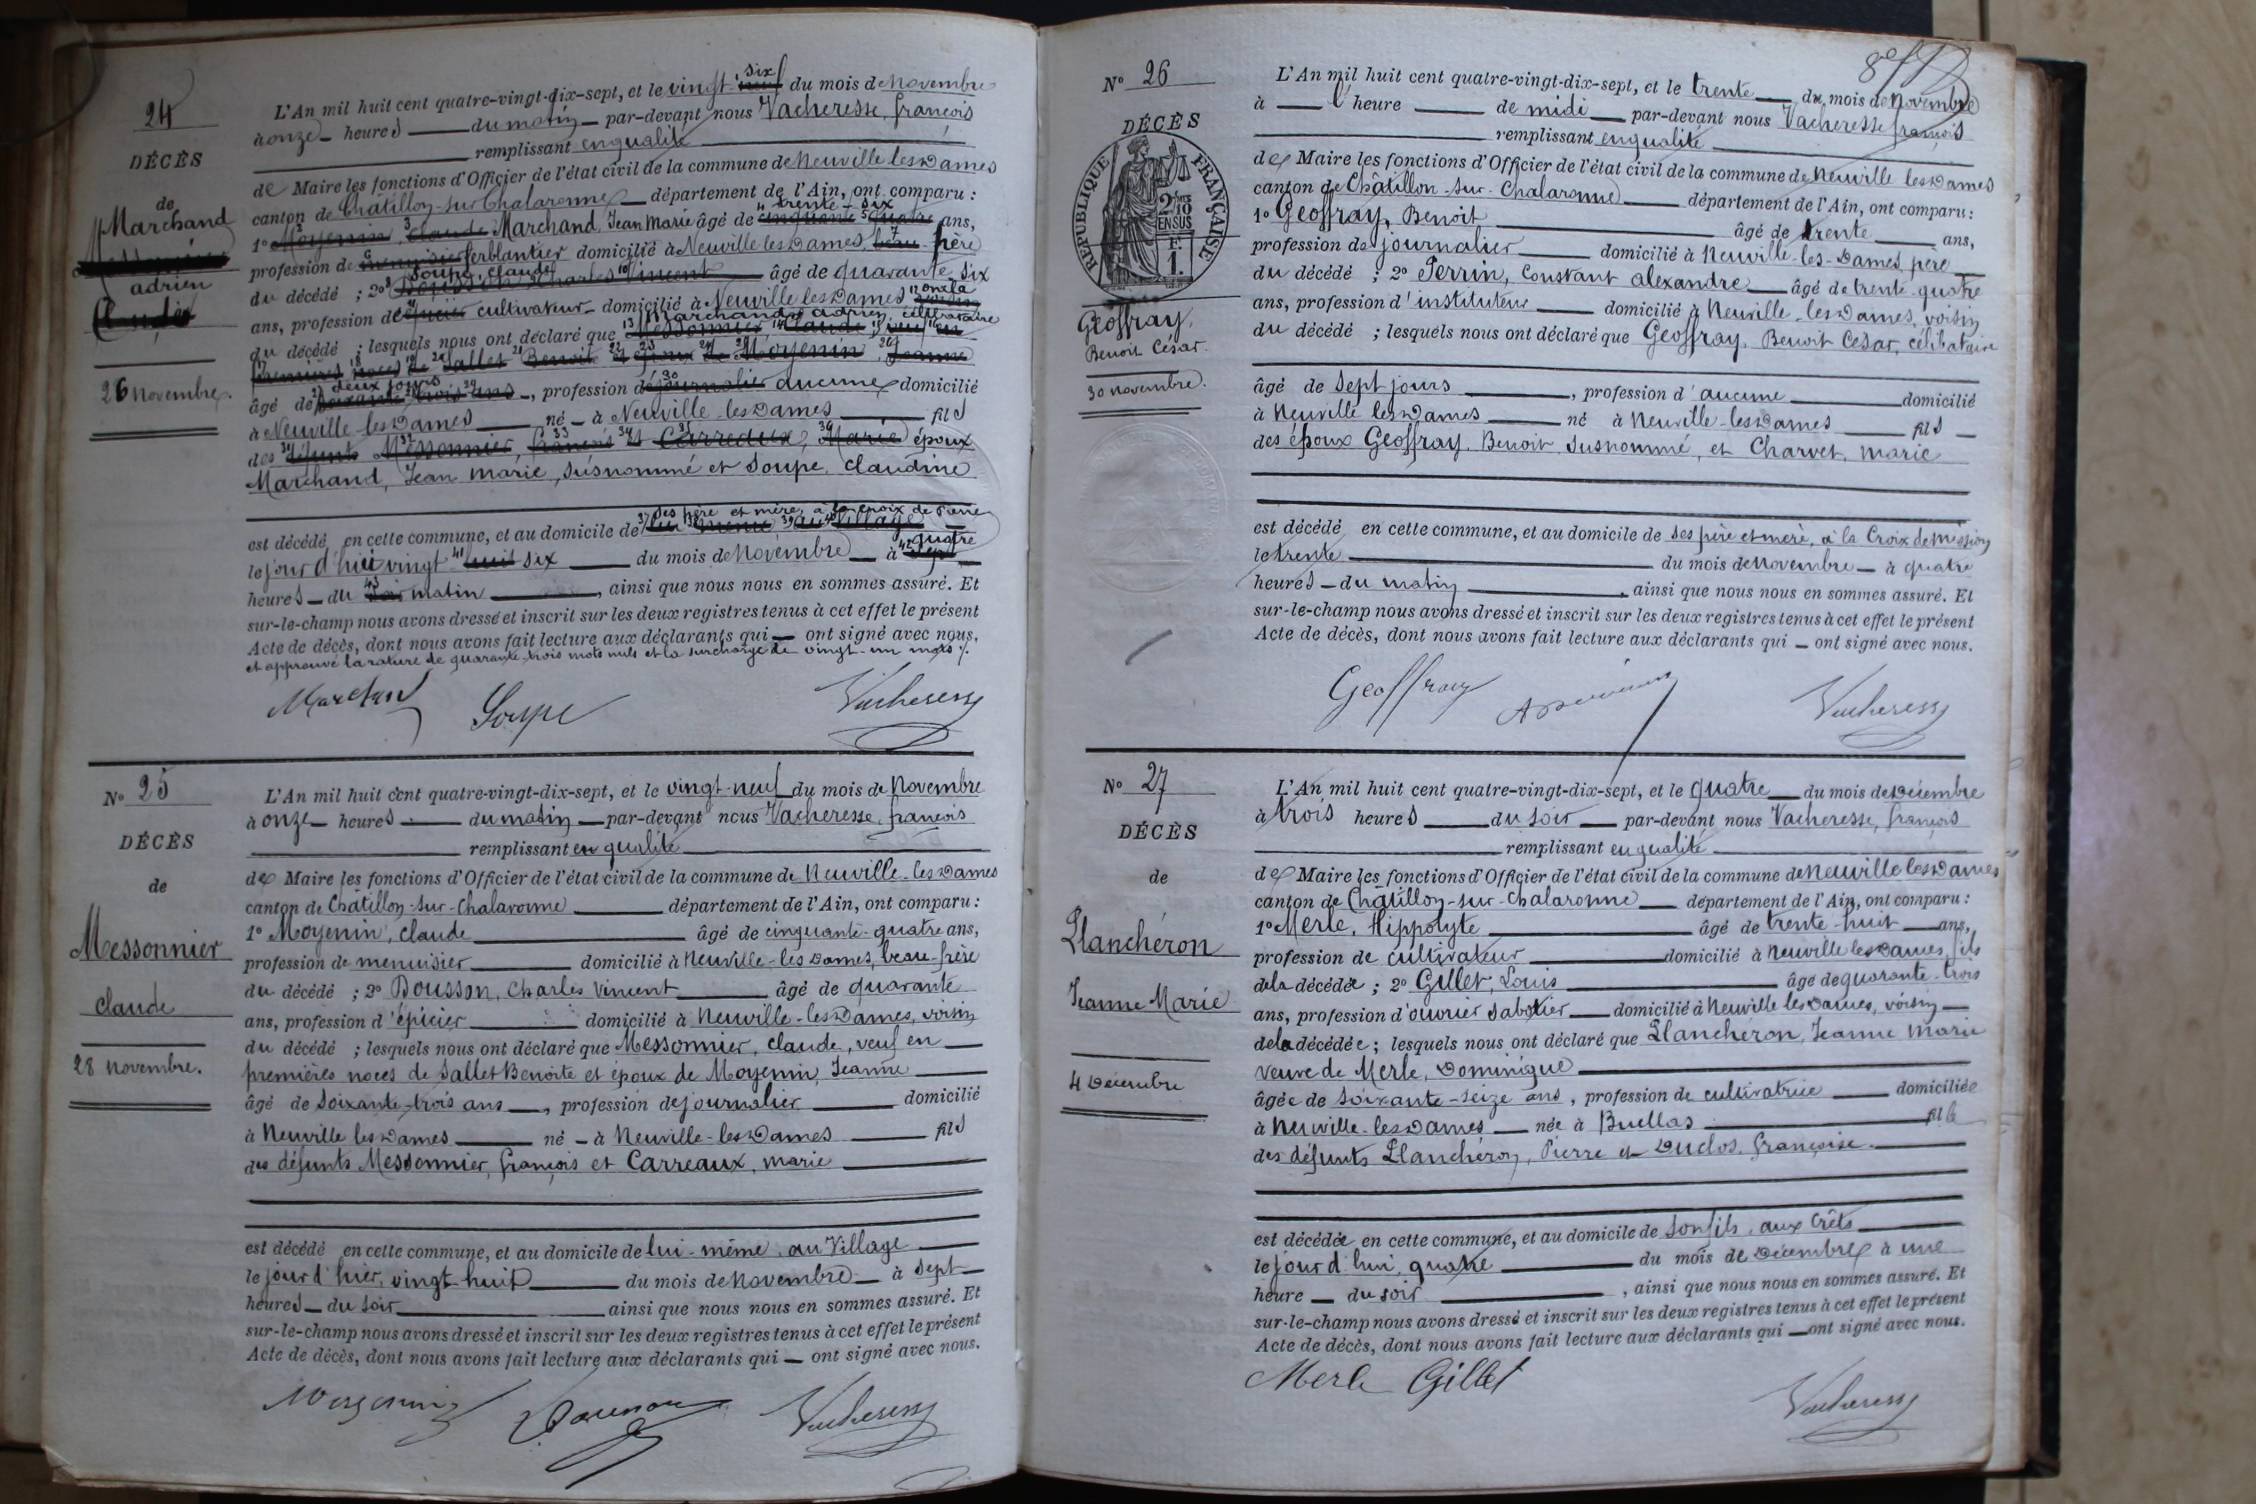 24
DÉCÈS
de
Marchand
adrien
26 novembre.
L'An mil huit cent quatre-vingt-dix-sept, et le vingt-six du mois de novembre
à onze heures du matin par-devant nous Vacheresse, françois
remplissant en qualité
de Maire les fonctions d'Officier de l'état civil de la commune de Neuville les Dames
canton de Châtillon-sur-Chalaronne département de l'Ain, ont comparu :
1º Marchand, Jean Marie âgé de trente-six ans,
profession de ferblantier domicilié à Neuville les Dames, père
du décédé ; 2º Soupe, Claude âgé de quarante six
ans, profession de cultivateur domicilié à Neuville les Dames oncle
du décédé ; lesquels nous ont déclaré que Marchand, adrien, célibataire
âgé de deux jours, profession d'aucune domicilié
à Neuville les Dames né à Neuville-les-Dames fils
des époux
Marchand, Jean marie, susnommé et Soupe, Claudine
est décédé en cette commune, et au domicile de ses père et mère, à la croix de Pierre
le jour d'hui vingt six du mois de Novembre à quatre
heures du matin, ainsi que nous nous en sommes assuré. Et
sur-le-champ nous avons dressé et inscrit sur les deux registres tenus à cet effet le présent
Acte de décès, dont nous avons fait lecture aux déclarants qui ont signé avec nous.
et approuvé la rature de quarante-trois mots nuls et la surcharge de vingt-un mots ./.
Marchand Soupe Vacheresse
Nº 25
DÉCÈS
de
Messonnier
claude
28 novembre.
L'An mil huit cent quatre-vingt-dix-sept, et le vingt-neuf du mois de Novembre
à onze heures du matin par-devant nous Vacheresse, françois
remplissant en qualité
de Maire les fonctions d'Officier de l'état civil de la commune de Neuville-les-Dames
canton de Châtillon-sur-Chalaronne département de l'Ain, ont comparu :
1º Moyenin, claude âgé de cinquante-quatre ans,
profession de menuisier domicilié à Neuville-les-Dames, beau-frère
du décédé ; 2º Bousson, Charles Vincent âgé de quarante
ans, profession d'épicier domicilié à Neuville-les-Dames, voisin
du décédé ; lesquels nous ont déclaré que Messonnier, claude, veuf en
premières noces de Sallet Benoite et époux de Moyenin, Jeanne
âgé de soixante-trois ans, profession de journalier domicilié
à Neuville les Dames né à Neuville-les-Dames fils
des défunts Messonnier, françois et Carreaux, marie
est décédé en cette commune, et au domicile de lui-même, au Village
le jour d'hier, vingt-huit du mois de novembre à sept
heures du soir ainsi que nous nous en sommes assuré. Et
sur-le-champ nous avons dressé et inscrit sur les deux registres tenus à cet effet le présent
Acte de décès, dont nous avons fait lecture aux déclarants qui ont signé avec nous.
Moyenin Bousson Vacheresse
Nº 26
DÉCÈS
RÉPUBLIQUE FRANÇAISE
2/10 EN SUS
F.
1.
Geoffray,
Benoit César.
30 novembre.
L'An mil huit cent quatre-vingt-dix-sept, et le trente du mois de novembre
à l'heure de midi par-devant nous Vacheresse françois
remplissant en qualité
de Maire les fonctions d'Officier de l'état civil de la commune de Neuville les Dames
canton de Châtillon-sur-Chalaronne département de l'Ain, ont comparu :
1º Geoffray, Benoit âgé de trente ans,
profession de journalier domicilié à Neuville-les-Dames, père
du décédé ; 2º Perrin, Constant alexandre âgé de trente-quatre
ans, profession d'instituteur domicilié à Neuville-les-Dames, voisin
du décédé ; lesquels nous ont déclaré que Geoffray, Benoit César, célibataire
âgé de sept jours, profession d'aucune domicilié
à Neuville les Dames né à Neuville-les-Dames fils
des époux Geoffray, Benoit, susnommé, et Charvet, marie
est décédé en cette commune, et au domicile de ses père et mère, à la Croix de Mission
le trente du mois de novembre à quatre
heures du matin, ainsi que nous nous en sommes assuré. Et
sur-le-champ nous avons dressé et inscrit sur les deux registres tenus à cet effet le présent
Acte de décès, dont nous avons fait lecture aux déclarants qui ont signé avec nous.
Geoffray Vacheresse
Nº 27
DÉCÈS
de
Planchéron
Jeanne Marie
4 Décembre
L'An mil huit cent quatre-vingt-dix-sept, et le quatre du mois de Décembre
à trois heures du soir par-devant nous Vacheresse, françois
remplissant en qualité
de Maire les fonctions d'Officier de l'état civil de la commune de Neuville les Dames
canton de Châtillon-sur-Chalaronne département de l'Ain, ont comparu :
1º Merle, Hippolyte âgé de trente-huit ans,
profession de cultivateur domicilié à Neuville les Dames, fils
de la décédée ; 2º Gillet, Louis âgé de quarante-trois
ans, profession d'ouvrier sabotier domicilié à Neuville les Dames, voisin
de la décédée ; lesquels nous ont déclaré que Planchéron, Jeanne Marie
veuve de Merle, Dominique
âgée de soixante-seize ans, profession de cultivatrice domiciliée
à Neuville-les-Dames née à Buellas fille
des défunts Planchéron, Pierre et Duclos, Françoise.
est décédée en cette commune, et au domicile de son fils, aux Crêts
le jour d'hui, quatre du mois de Décembre à une
heure du soir, ainsi que nous nous en sommes assuré. Et
sur-le-champ nous avons dressé et inscrit sur les deux registres tenus à cet effet le présent
Acte de décès, dont nous avons fait lecture aux déclarants qui ont signé avec nous.
Merle Gillet Vacheresse